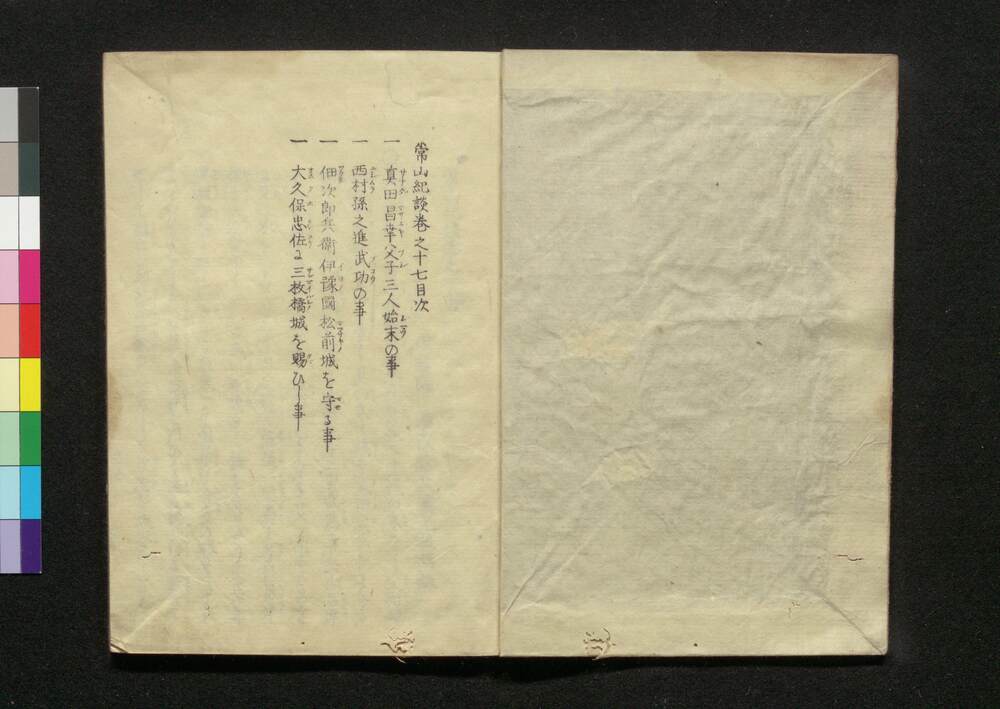 常山紀談巻之十七目次
一 真田昌幸父子三人始末の事
一 西村孫之進武功の事
一 佃次郎兵衛伊豫國松前城を守る事
一 大久保忠佐に三枚橋城を賜ひし事